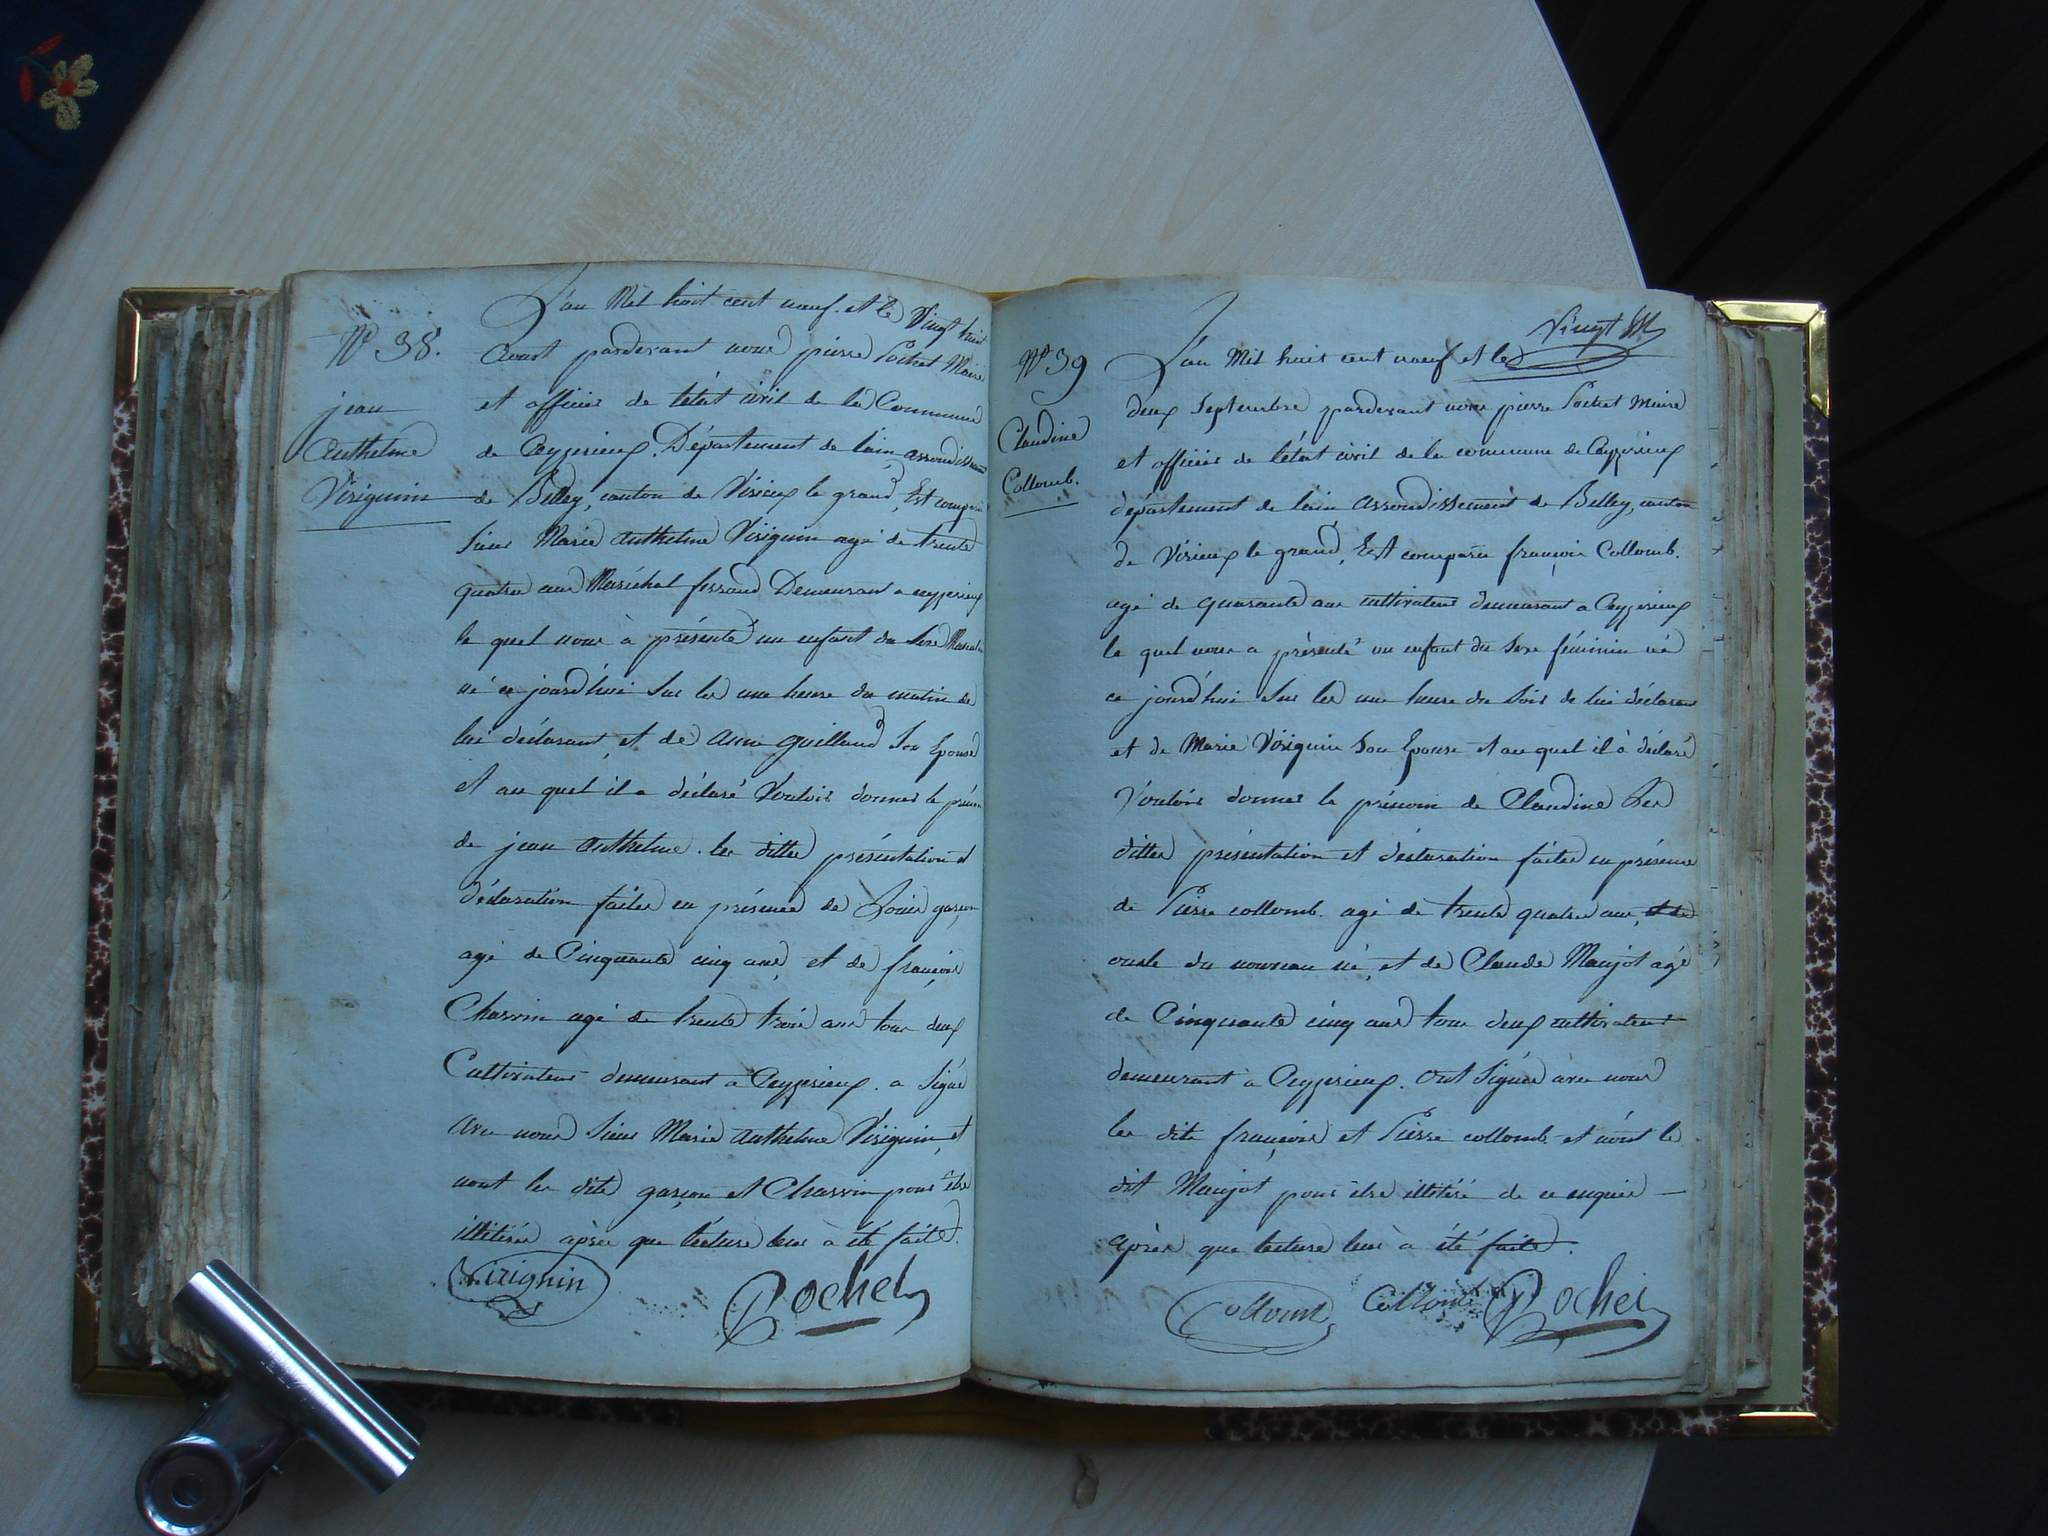 N° 38.
jean
Anthelme
Viriguin
L'an Mil huit cent neuf et le Vingt huit
Aoust pardevant nous pierre Pochet Maire
et officier de létat civil de la Commune
de Ceyzerieux, Département de lain, arrondissement
de Belley, canton de Virieux le grand, Est comparu
Sieur Marie Anthelme Viriguin agé de trente
quatre ans Maréchal ferrand Demeurant a ceyzerieux
le quel nous à présenté un enfant du Sexe Masculin
né ce jourd'hui sur les une heure du matin de
lui déclarant, et de Anne guilland Son Epouse
et au quel il a déclaré Vouloir donner le prénom
de jean Anthelme. les dittes présentation et
déclaration faites en présence de Louis garçon
agé de Cinquante cinq ans, et de françois
Charvin agé de trente trois ans tous deux
Cultivateurs demeurant a Ceyzerieux. a Signé
avec nous Sieur Marie Anthelme Viriguin, et
nont les dits garçon et Charvin pour être
illitirés après que lecture leur à été faite.
Virignin
Pochet
Vingt
N° 39
Claudine
Collomb.
L'an Mil huit cent neuf et le
deux Septembre pardevant nous pierre Pochet Maire
et officier de létat civil de la commune de Ceyzerieux
département de lain arrondissement de Belley, canton
de Virieux le grand, Est comparu françois Collomb.
agé de quarante ans cultivateur demeurant a Ceyzerieux
le quel nous a présenté un enfant du Sexe féminin né
ce jourd'hui Sur les une heure du Soir de lui déclarant
et de Marie Viriguin Son Epouse et au quel il à déclaré
Vouloir donner le prénom de Claudine Les
dittes présentation et déclaration faites en présence
de Pierre collomb. agé de trente quatre ans, et de
oncle du nouveau né, et de Claude Maujot agé
de Cinquante cinq ans tous deux cultivateurs
demeurant à Ceyzerieux. Ont Signés avec nous
les dits françois et Pierre collomb et nont le
dit Maujot pour être illitéré de ce enquis
Après que lecture leur à été faite.
Collomb
Collomb
Pochet